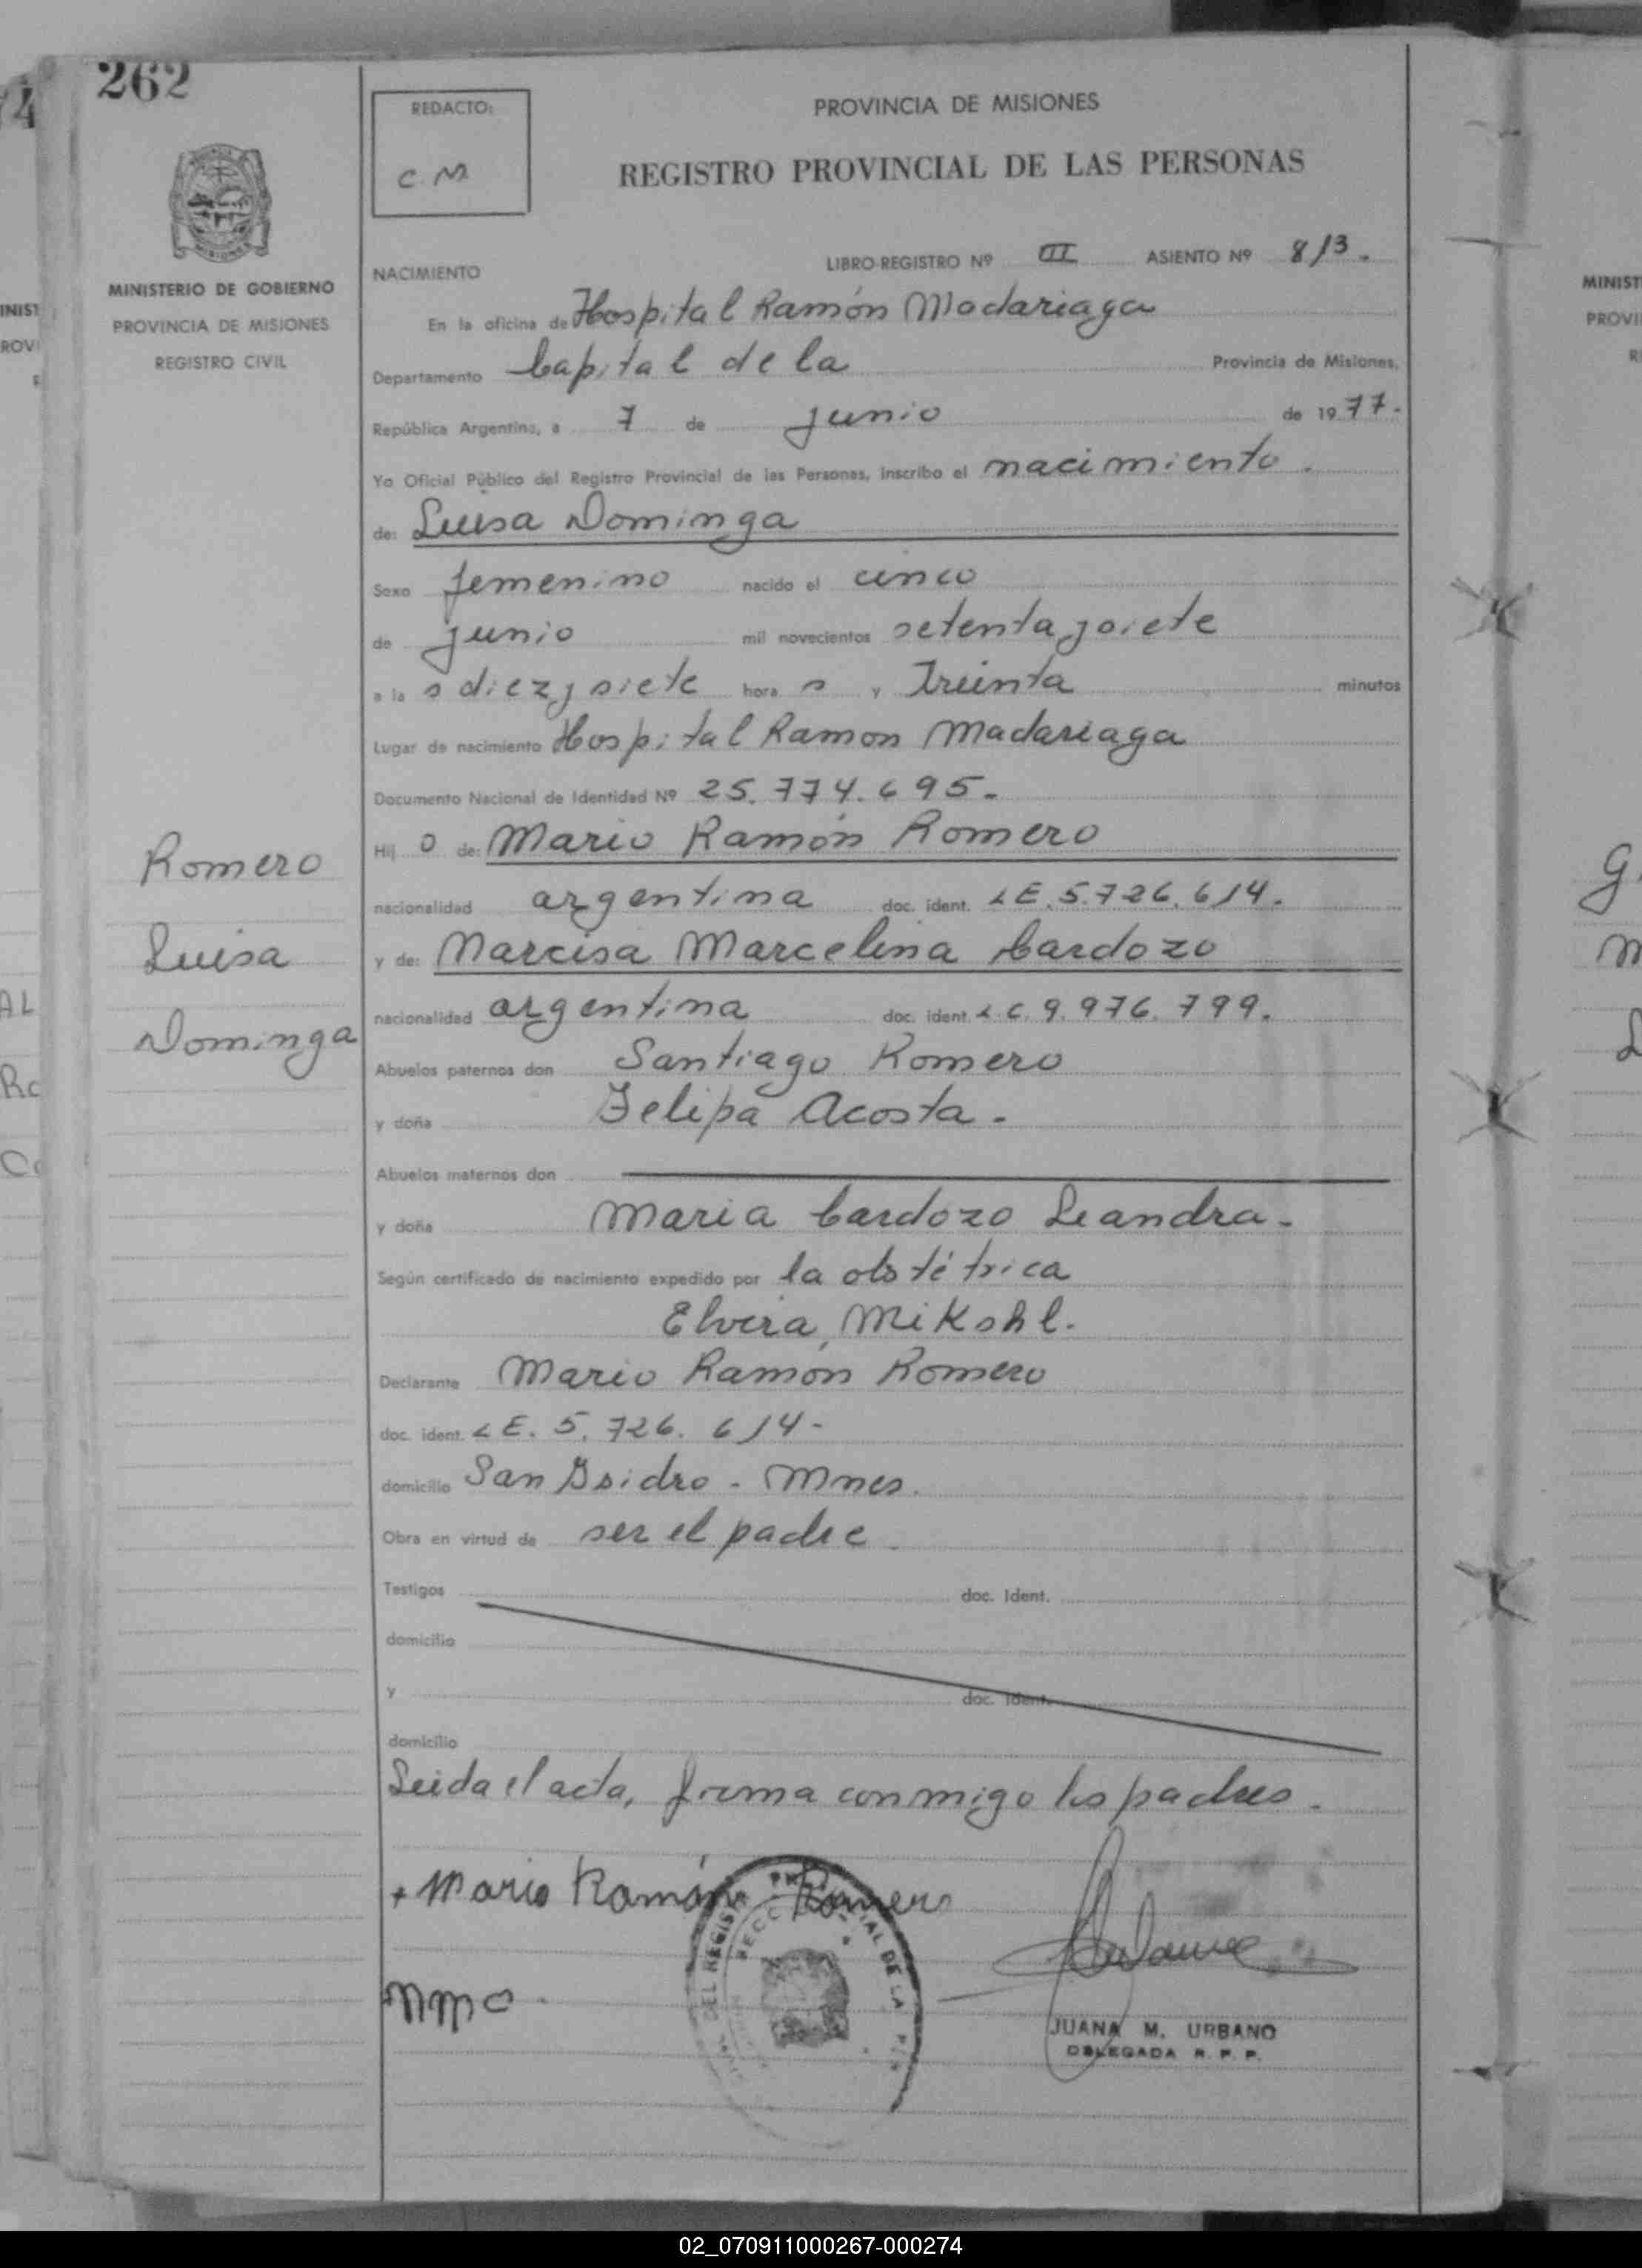 262
REDACTO:
C. M
PROVINCIA DE MISIONES
REGISTRO PROVINCIAL DE LAS PERSONAS
MINISTERIO DE GOBIERNO
PROVINCIA DE MISIONES
REGISTRO CIVIL
NACIMIENTO LIBRO-REGISTRO Nº III ASIENTO Nº 813.
En la oficina de Hospital Ramón Madariaga
Departamento Capital de la Provincia de Misiones,
República Argentina, a 7 de junio de 1977.
Yo Oficial Público del Registro Provincial de las Personas, inscribo el nacimiento.
de: Luisa Dominga
Sexo femenino nacido el cinco
de junio mil novecientos setenta y siete
a la s diez y siete hora s y Treinta minutos
Lugar de nacimiento Hospital Ramon Madariaga
Documento Nacional de Identidad Nº 25.774.695.
Hij o de: Mario Ramón Romero
nacionalidad argentina doc. ident. LE. 5.726.614.
y de: Narcisa Marcelina Cardozo
nacionalidad argentina doc. ident. L C. 9.976.799.
Abuelos paternos don Santiago Romero
y doña Felipa Acosta.
Abuelos maternos don
y doña Maria Cardozo Leandra.
Según certificado de nacimiento expedido por la obstétrica
Elvira Mikohl.
Declarante Mario Ramón Romero
doc. ident. LE. 5.726.614-
domicilio San Isidro - Mnes.
Obra en virtud de ser el padre.
Testigos doc. Ident.
domicilio
y doc. Ident.
domicilio
Leida el acta, firma conmigo los padres.
+ Mario Ramón Romero
NMC.
JUANA M. URBANO
DELEGADA R. P. P.
Romero
Luisa
Dominga
02_070911000267-000274